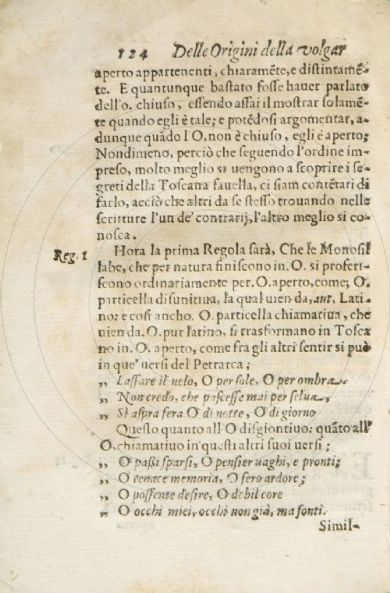 124 Delle Origini della volgar
aperto appartenenti, chiaramẽte, e distintamẽ-
te. E quantunque bastato fosse hauer parlato
dell'o. chiuso, essendo assai il mostrar solamẽ-
te quando egli è tale; e potẽdosi argomentar, a-
dunque quãdo l O. non è chiuso, egli è aperto;
Nondimeno, perciò che seguendo l'ordine im-
preso, molto meglio si uengono a scoprire i se-
greti della Toscana fauella, ci siam contẽtati di
farlo, acciò che altri da se stesso trouando nelle
scritture l'un de' contrarij, l'altro meglio si co-
nosca.
Reg. 1 Hora la prima Regola sarà, Che le Monosil
labe, che per natura finiscono in. O. si proferi-
scono ordinariamente per. O. aperto, come; O.
particella disiuntiua, la qual uien da, aut, Lati-
no: e così ancho. O. particella chiamatiua, che
uien da. O. pur latino, si trasformano in Tosca
no in. O. aperto, come fra gli altri sentir si può
in que' uersi del Petrarca;
„ Lassare il uelo, O per sole, O per ombra.
„ Non credo, che pascesse mai per selua,
„ Sì aspra fera O di notte, O di giorno
Questo quanto all'O disgiontiuo: quãto all'
O. chiamatiuo in questi altri suoi uersi;
„ O passi sparsi, O pensier uaghi, e pronti;
„ O tenace memoria, O fero ardore;
„ O possente desire, O debil core
„ O occhi miei, occhi non già, ma fonti.
Simil-